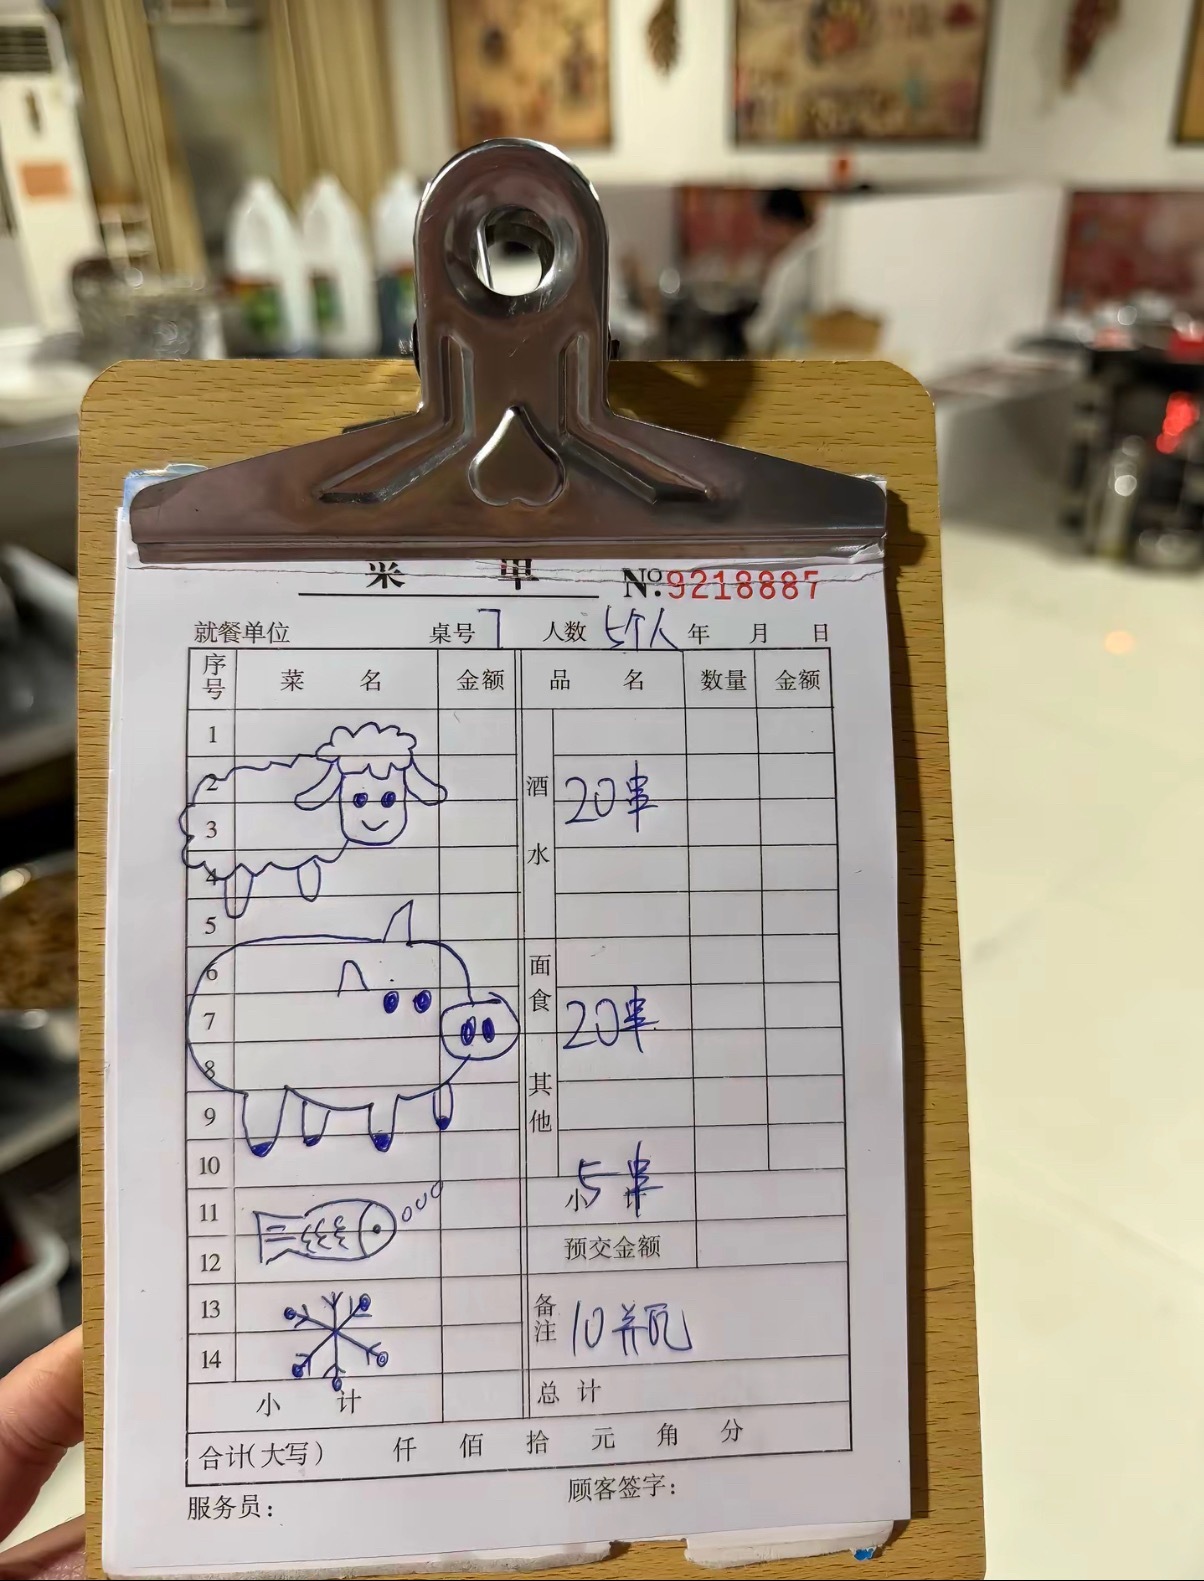 菜 单 №:9218887
就餐单位 桌号 7 人数 5个人 年 月 日
序号 菜 名 金额 品 名 数量 金额
1
2
3
4
5
6
7
8
9
10
11
12
13
14
酒水
20串
面食
20串
其他
5串
小 计
预交金额
备注 10瓶
小 计 总 计
合计(大写) 仟 佰 拾 元 角 分
服务员: 顾客签字: